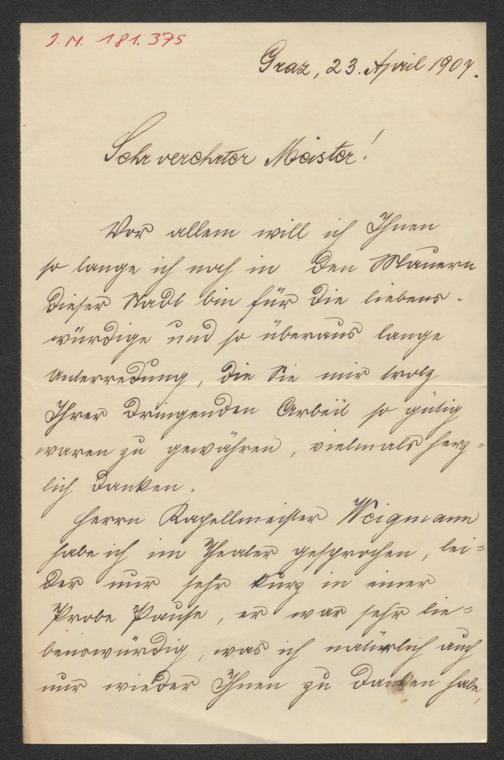 J.N. 181.375
Graz, 23. April 1907.
Sehr verehrter Meister!
Vor allem will ich Ihnen
so lange ich noch in den Mauern
dieser Stadt bin für die liebens-
würdige und so überaus lange
Unterredung, die Sie mir trotz
Ihrer dringenden Arbeit so gütig
waren zu gewähren, vielmals herz-
lich danken.
Herrn Kapellmeister Weigmann
habe ich im Theater gesprochen, lei-
der nur sehr kurz in einer
Probe Pause, er war sehr lie-
benswürdig, was ich natürlich auch
nur wieder Ihnen zu danken habe,